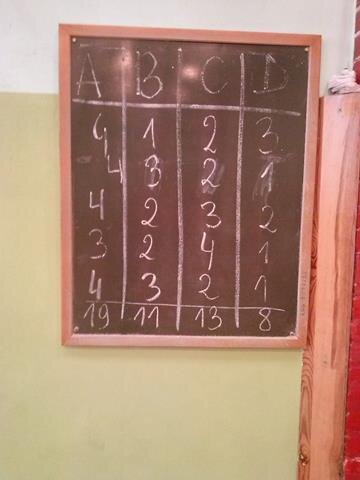 A B C D
4 1 2 3
4 3 2 1
4 2 3 2
3 2 4 1
4 3 2 1
19 11 13 8